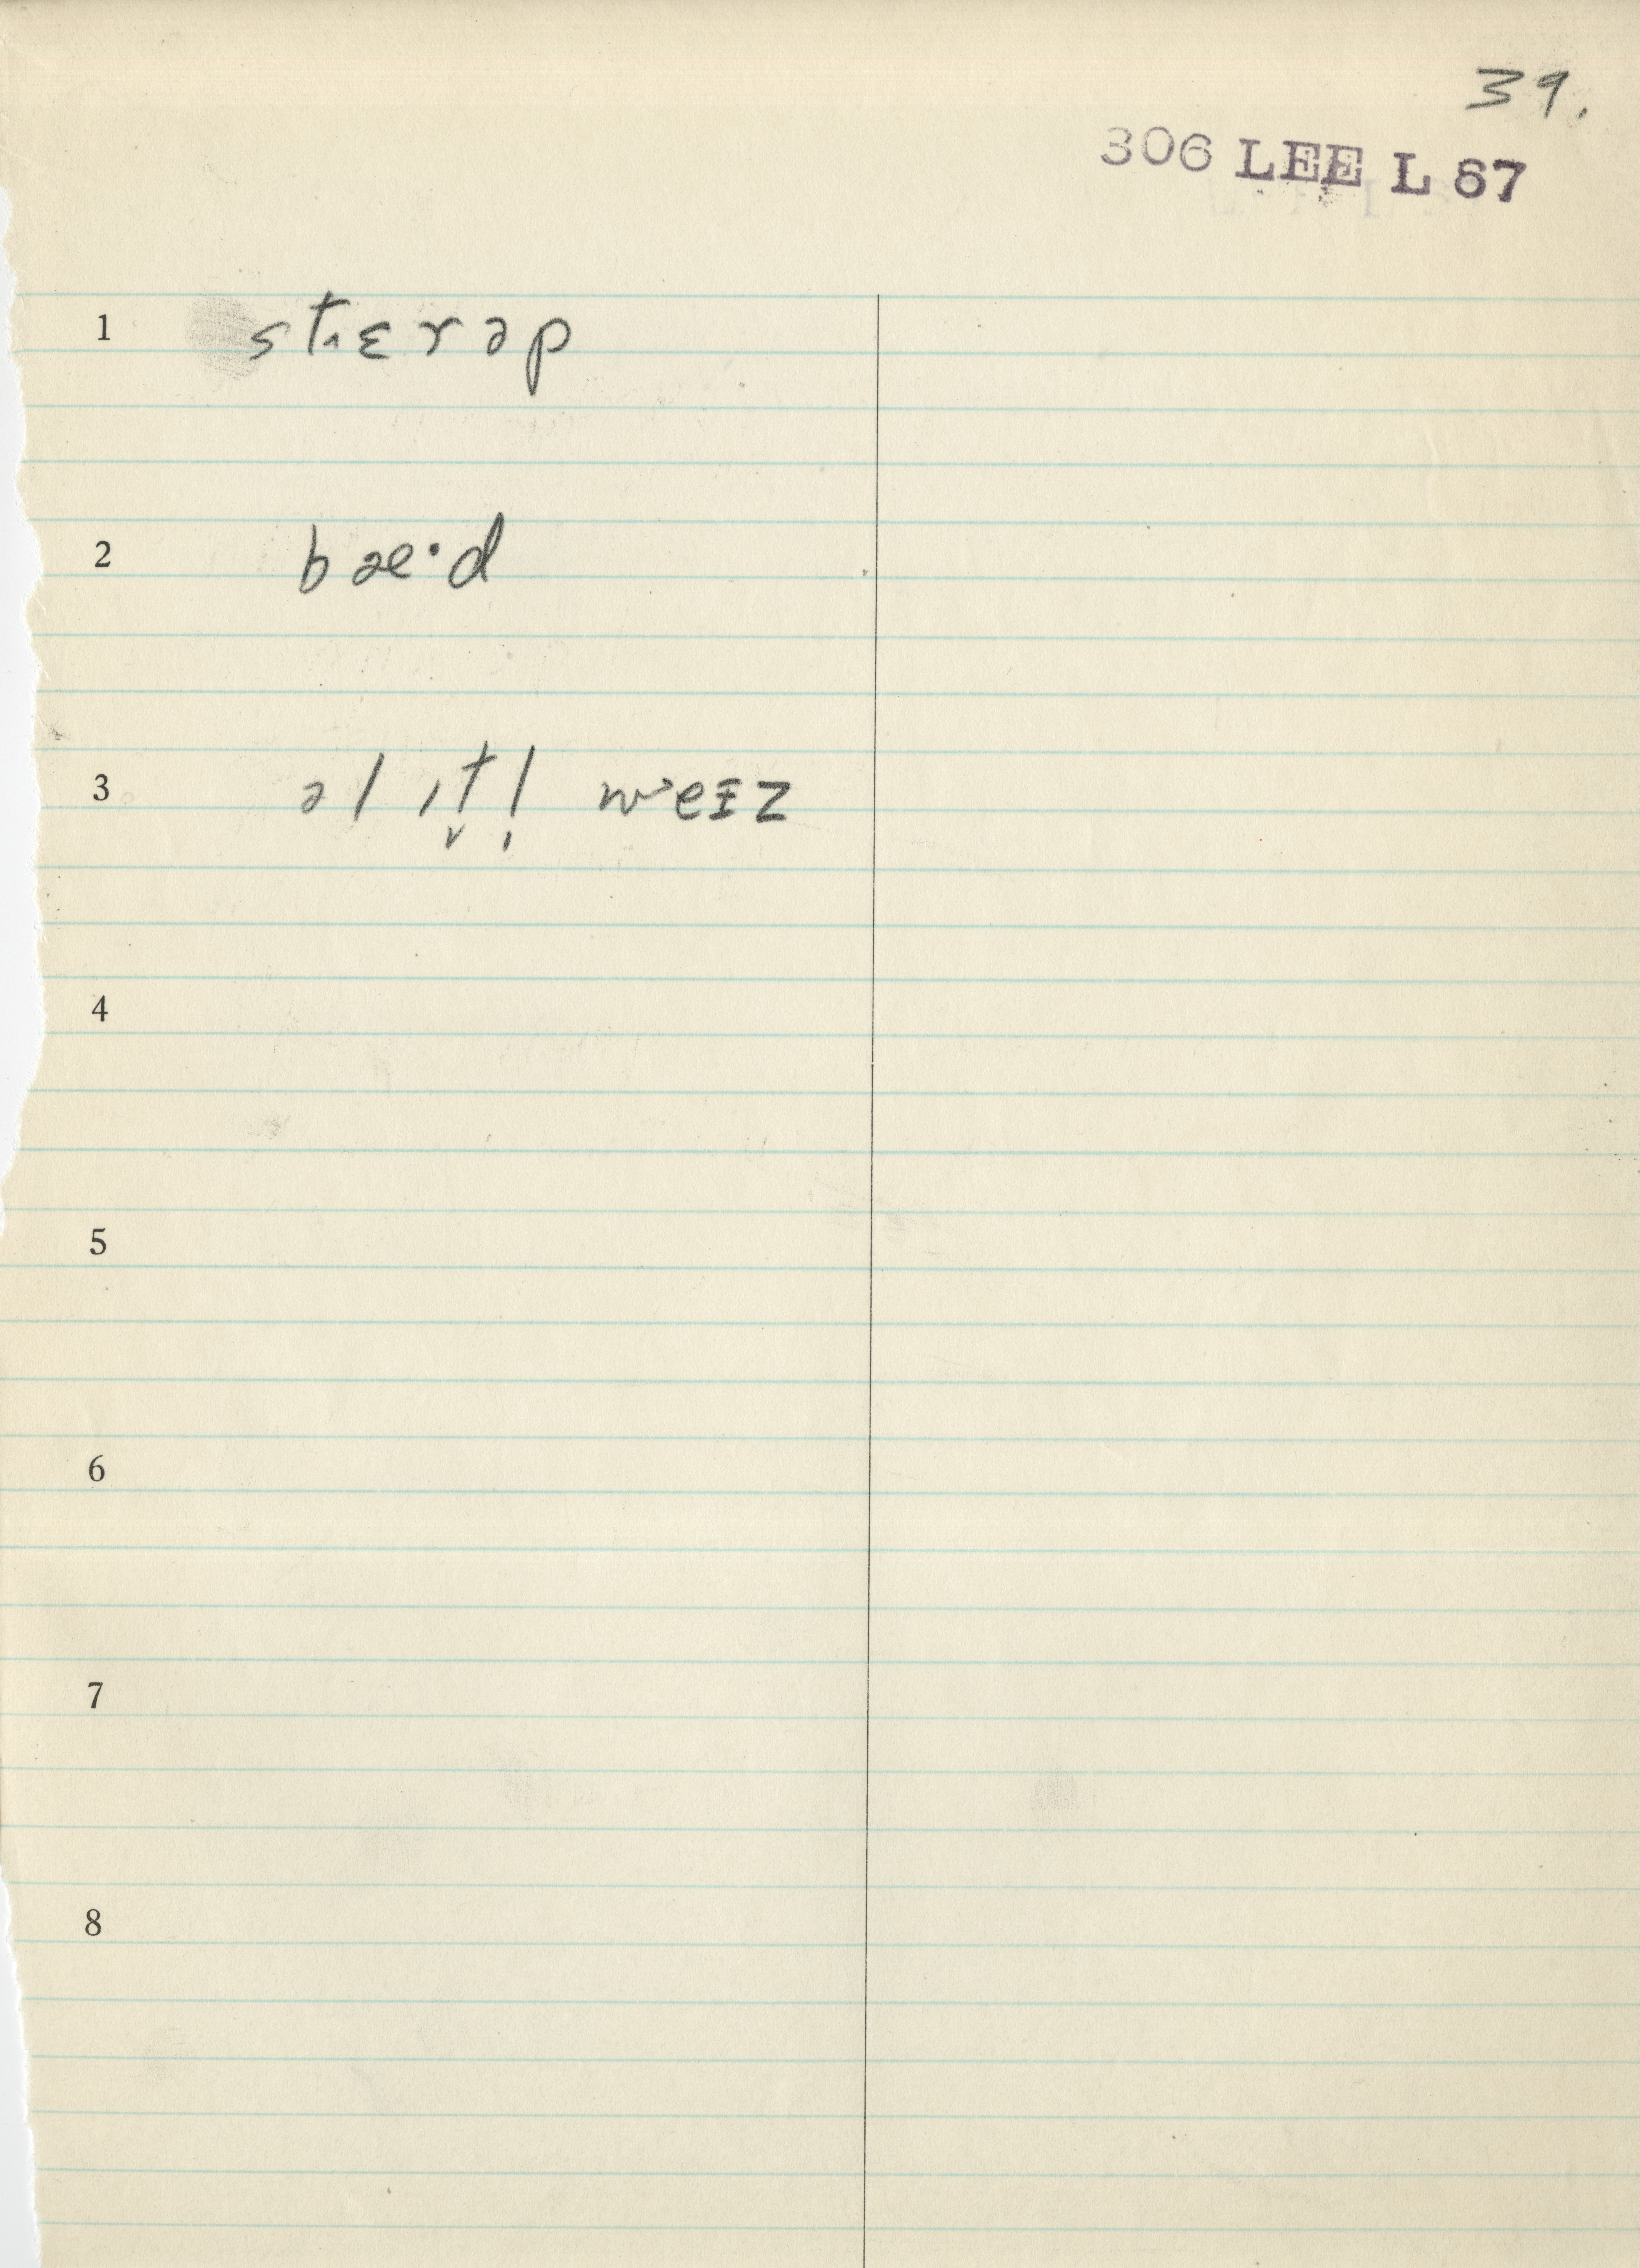 39.
306 LEE L 67
1 st˄ɛrəp
2 bæ·d
3 ə l ɪt̬l̩ wˑeɪz
4
5
6
7
8